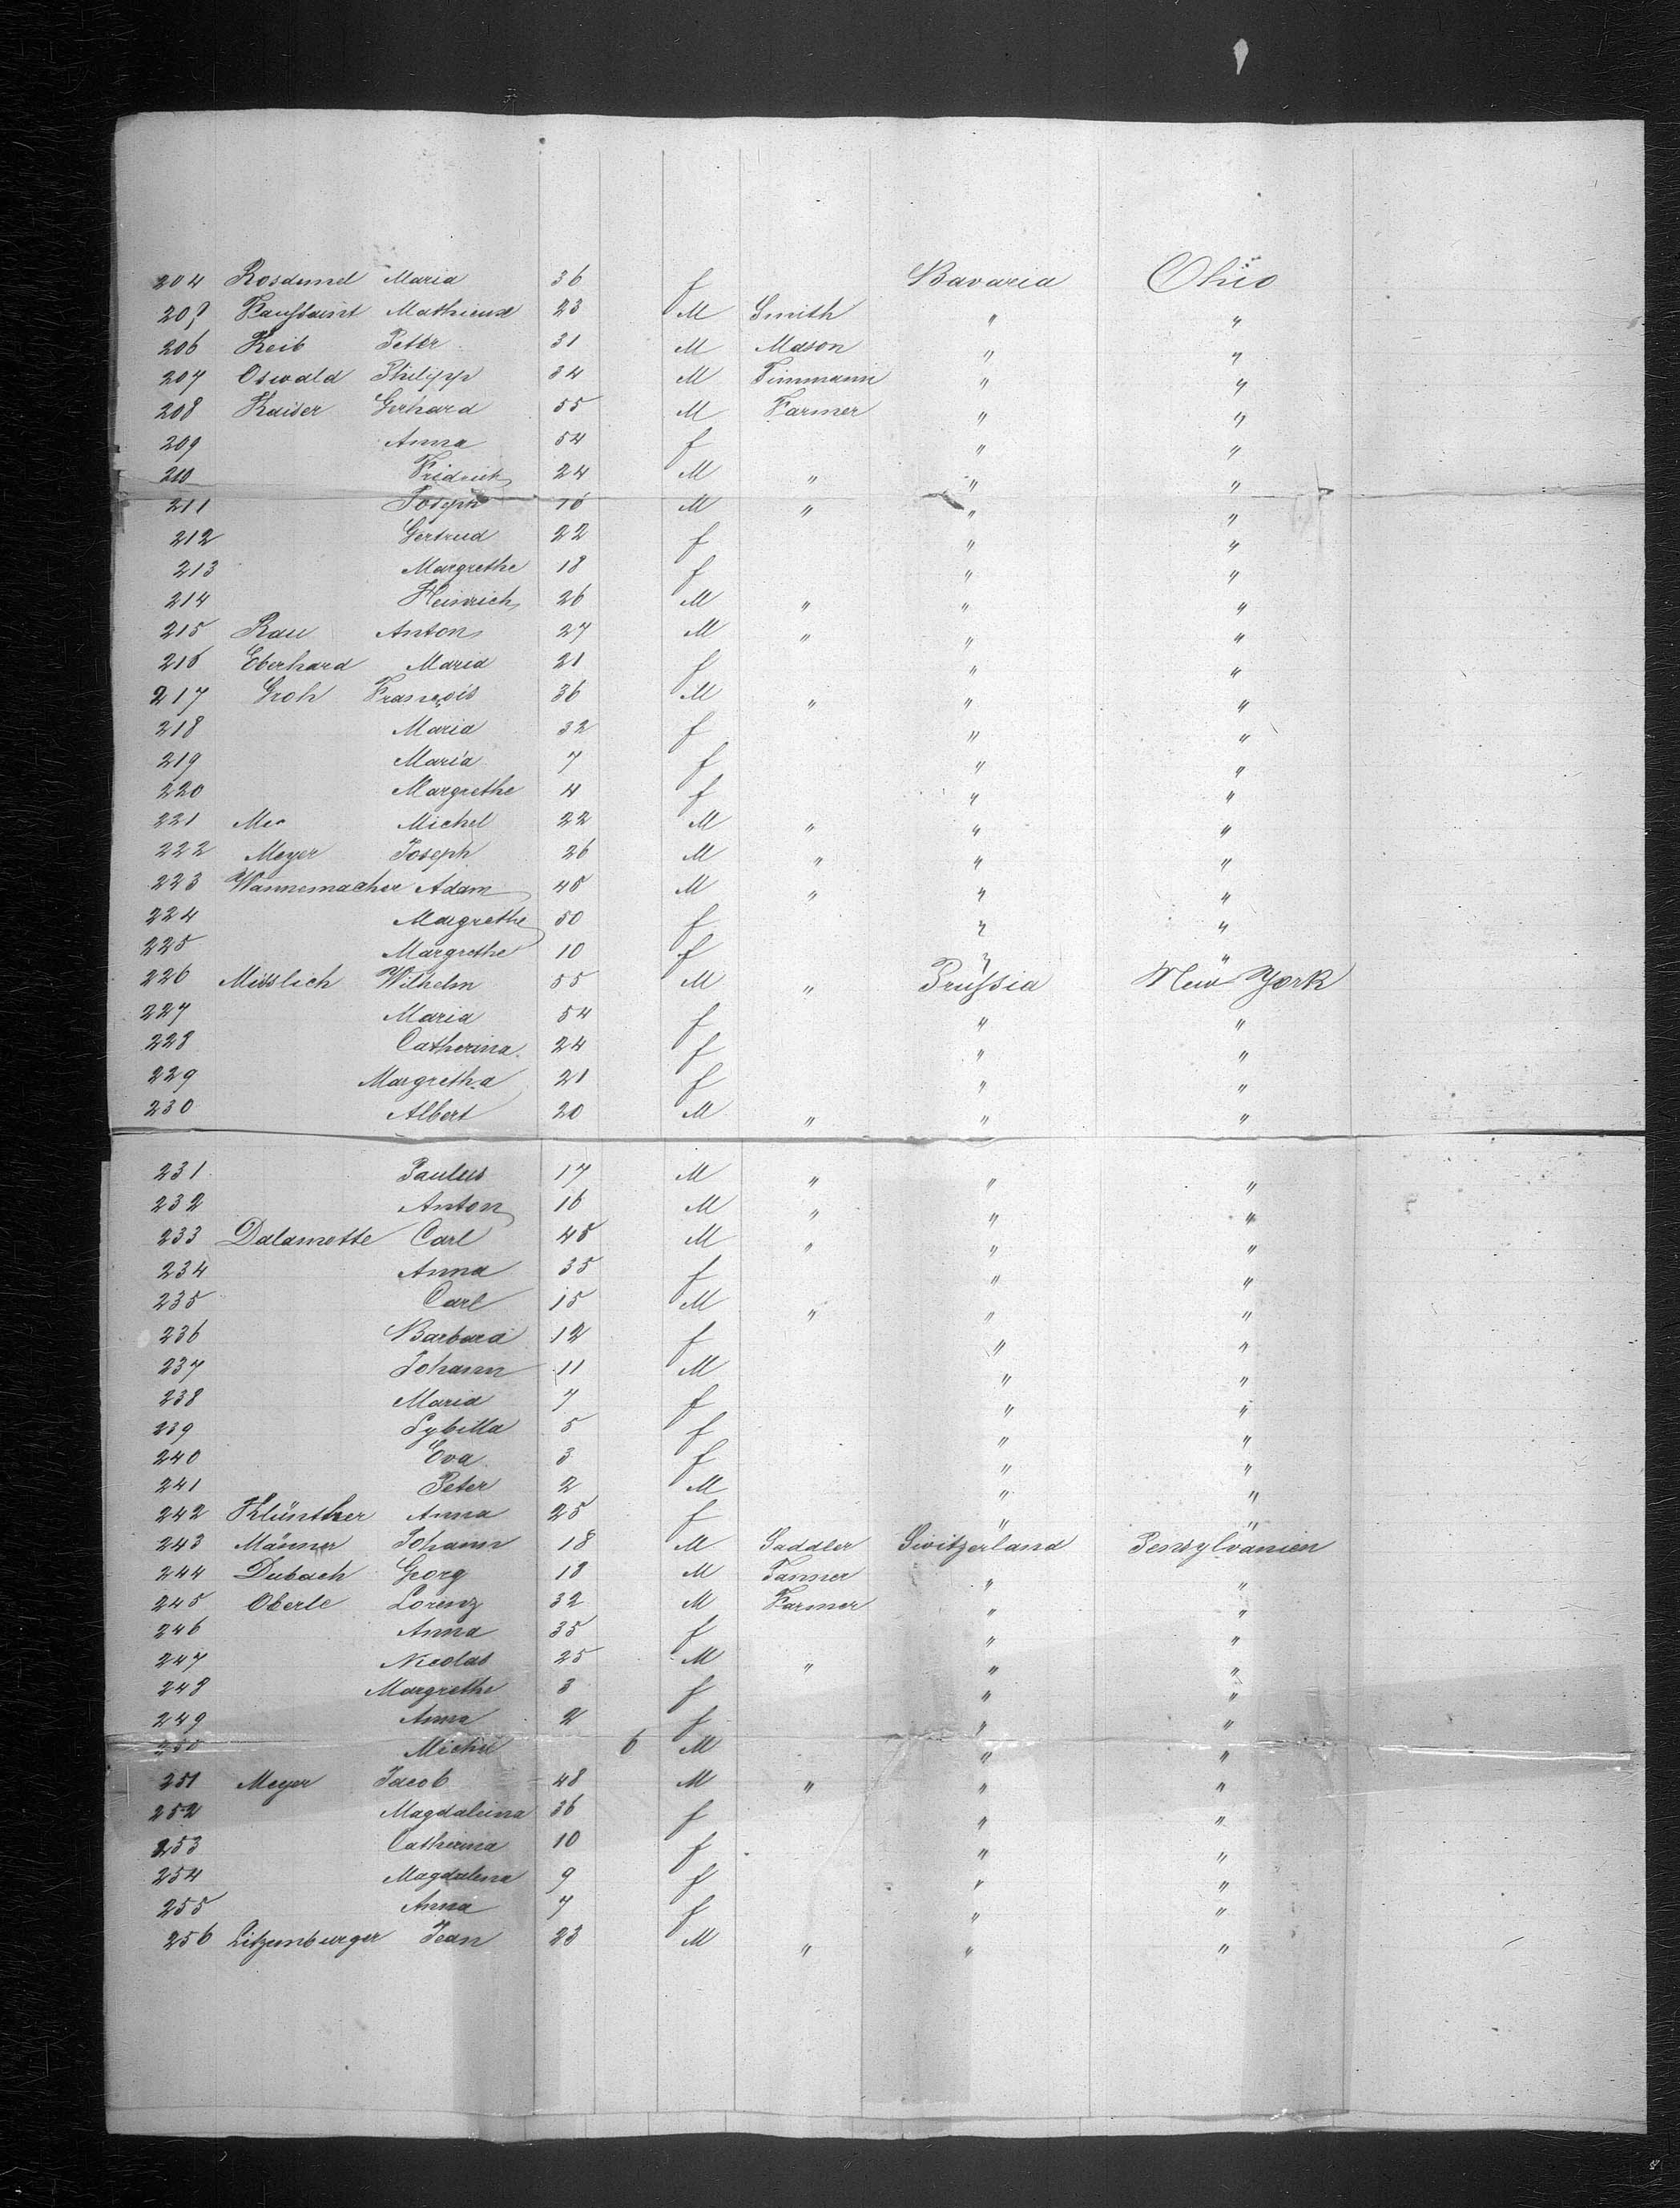 204 Rosdumel Maria 36 f Bavaria Ohio
205 Maria Mathieux 23 M Smith " "
206 Keib Peter 31 M Mason " "
207 Oswald Philipp 34 M Timmann " "
208 Kaiser Gerhard 55 M Farmer " "
209 Anna 54 f " "
210 Fridrich 24 M " " "
211 Joseph 16 M " " "
212 Gertrud 22 f " "
213 Margrethe 18 f " "
214 Heinrich 26 M " " "
215 Rau Anton 27 M " " "
216 Eberhard Maria 21 f " "
217 Groh François 36 M " " "
218 Maria 32 f " "
219 Maria 7 f " "
220 Margrethe 4 f " "
221 Michel 22 M " " "
222 Meyer Joseph 26 M " " "
223 Wannemacher Adam 45 M " " "
224 Margrethe 50 f " "
225 Margrethe 10 f " "
226 Misslich Wilhelm 55 M " Prussia New York
227 Maria 54 f " "
228 Catherina 24 f " "
229 Margretha 21 f " "
230 Albert 20 M " " "
231 Paulus 17 M " " "
232 Anton 16 M " " "
233 Dalamotte Carl 45 M " " "
234 Anna 35 f " "
235 Carl 15 M " " "
236 Barbara 12 f " "
237 Johann 11 M " "
238 Maria 7 f " "
239 Sybilla 5 f " "
240 Eva 3 f " "
241 Peter 2 M " "
242 Klünther Anna 25 f " "
243 Männer Johann 18 M Saddler Switzerland Pensylvanien
244 Dubach Georg 18 M Tanner " "
245 Oberle Lorenz 32 M Farmer " "
246 Anna 35 f " "
247 Nicolas 25 M " " "
248 Margrethe 3 f " "
249 Anna 2 f " "
250 Michel 6 M " "
251 Meyer Jacob 48 M " " "
252 Magdaleina 36 f " "
253 Catherina 10 f " "
254 Magdalena 9 f " "
255 Anna 7 f " "
256 Litzemburger Jean 23 M " " "